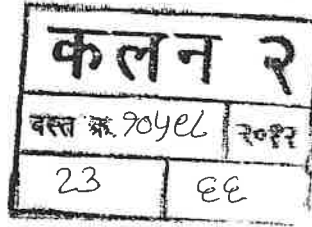 कलन २
दस्त क्र. १०५९८ २०१२
23 ६६